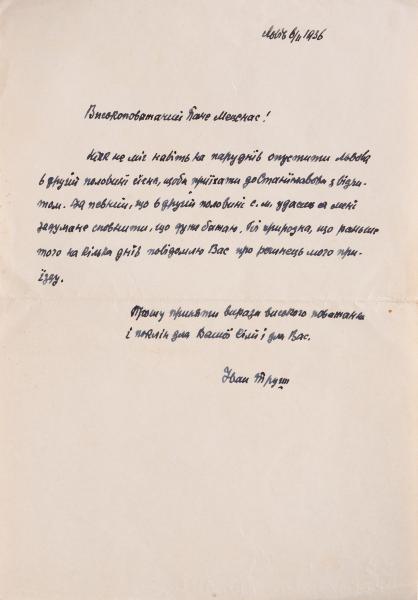 Львів 6/II 1936
Високоповажаний Пане Меценас!
не міг навіть на пару днів опустити Львова
в другій половині січня, щоби приїхати до Станиславова з відчи-
том. Я певний, що в другій половині с. м. удасться мені
задумане сповнити, що дуже бажаю. Річ природна, що раньше
того на кілька днів повідомлю Вас про речинець мого при-
їзду.
Прошу приняти вирази високого поважання
і поклін для Вашої і для Вас.
Іван Труш